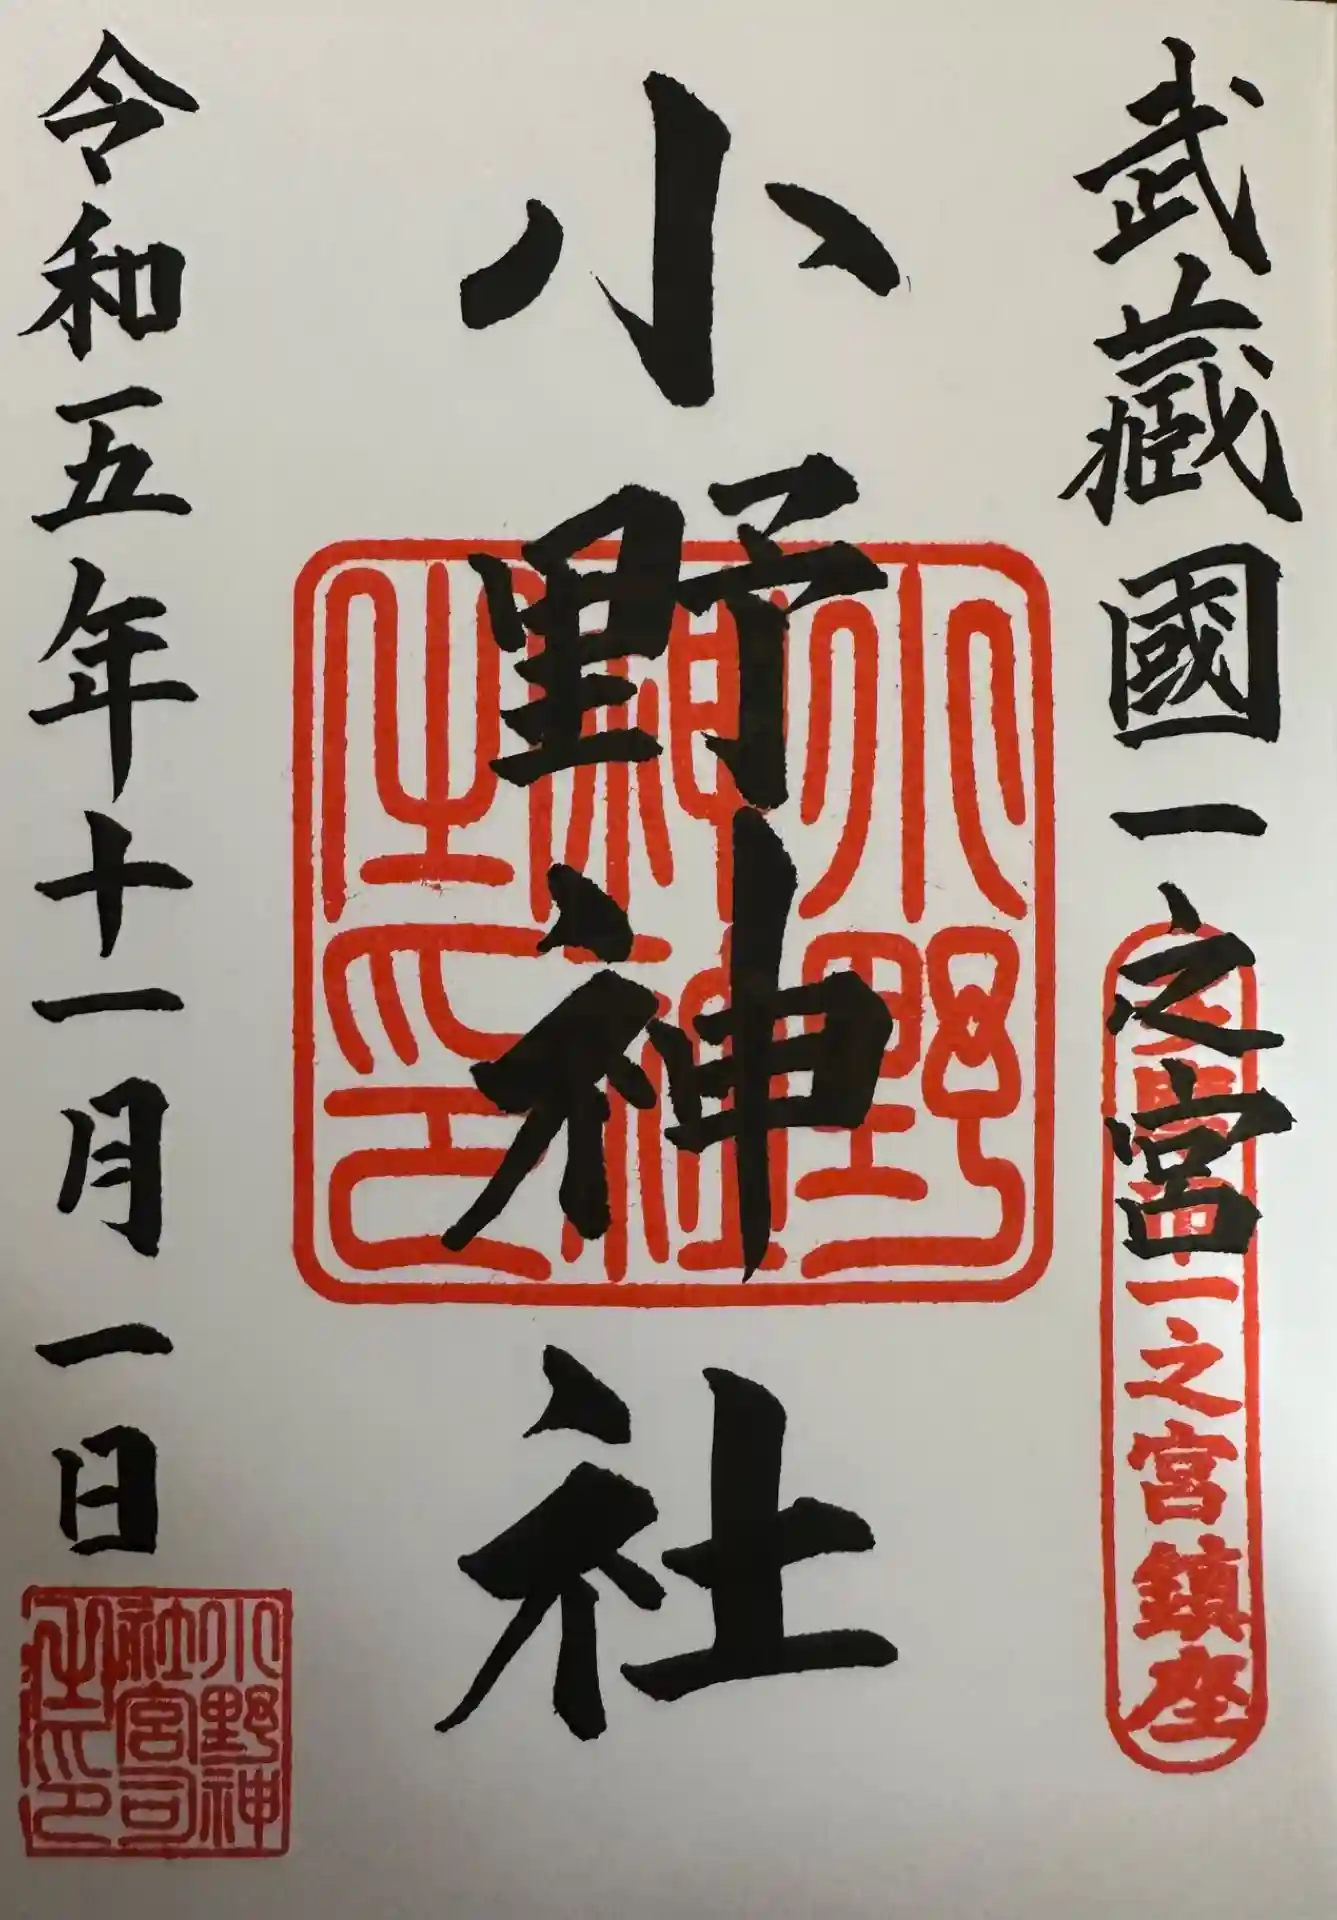 武蔵國一之宮
一之宮鎮座
小野神社
小野神社之印
令和五年十一月一日
小野神社宮司之印